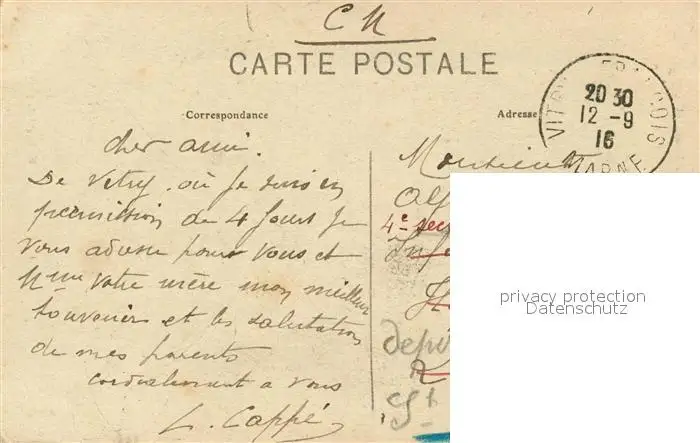 CARTE POSTALE
Correspondance
Adresse
20 30
12 -9
16
cher ami.
De Vitry où je suis en
permission de 4 Jours je
vous adresse pour vous et
Mme votre mère mon meilleur
souvenir et les salutations
de mes parents
cordialement a vous
L. Cappé
Monsieur
4e sec
Inf
privacy protection
Datenschutz